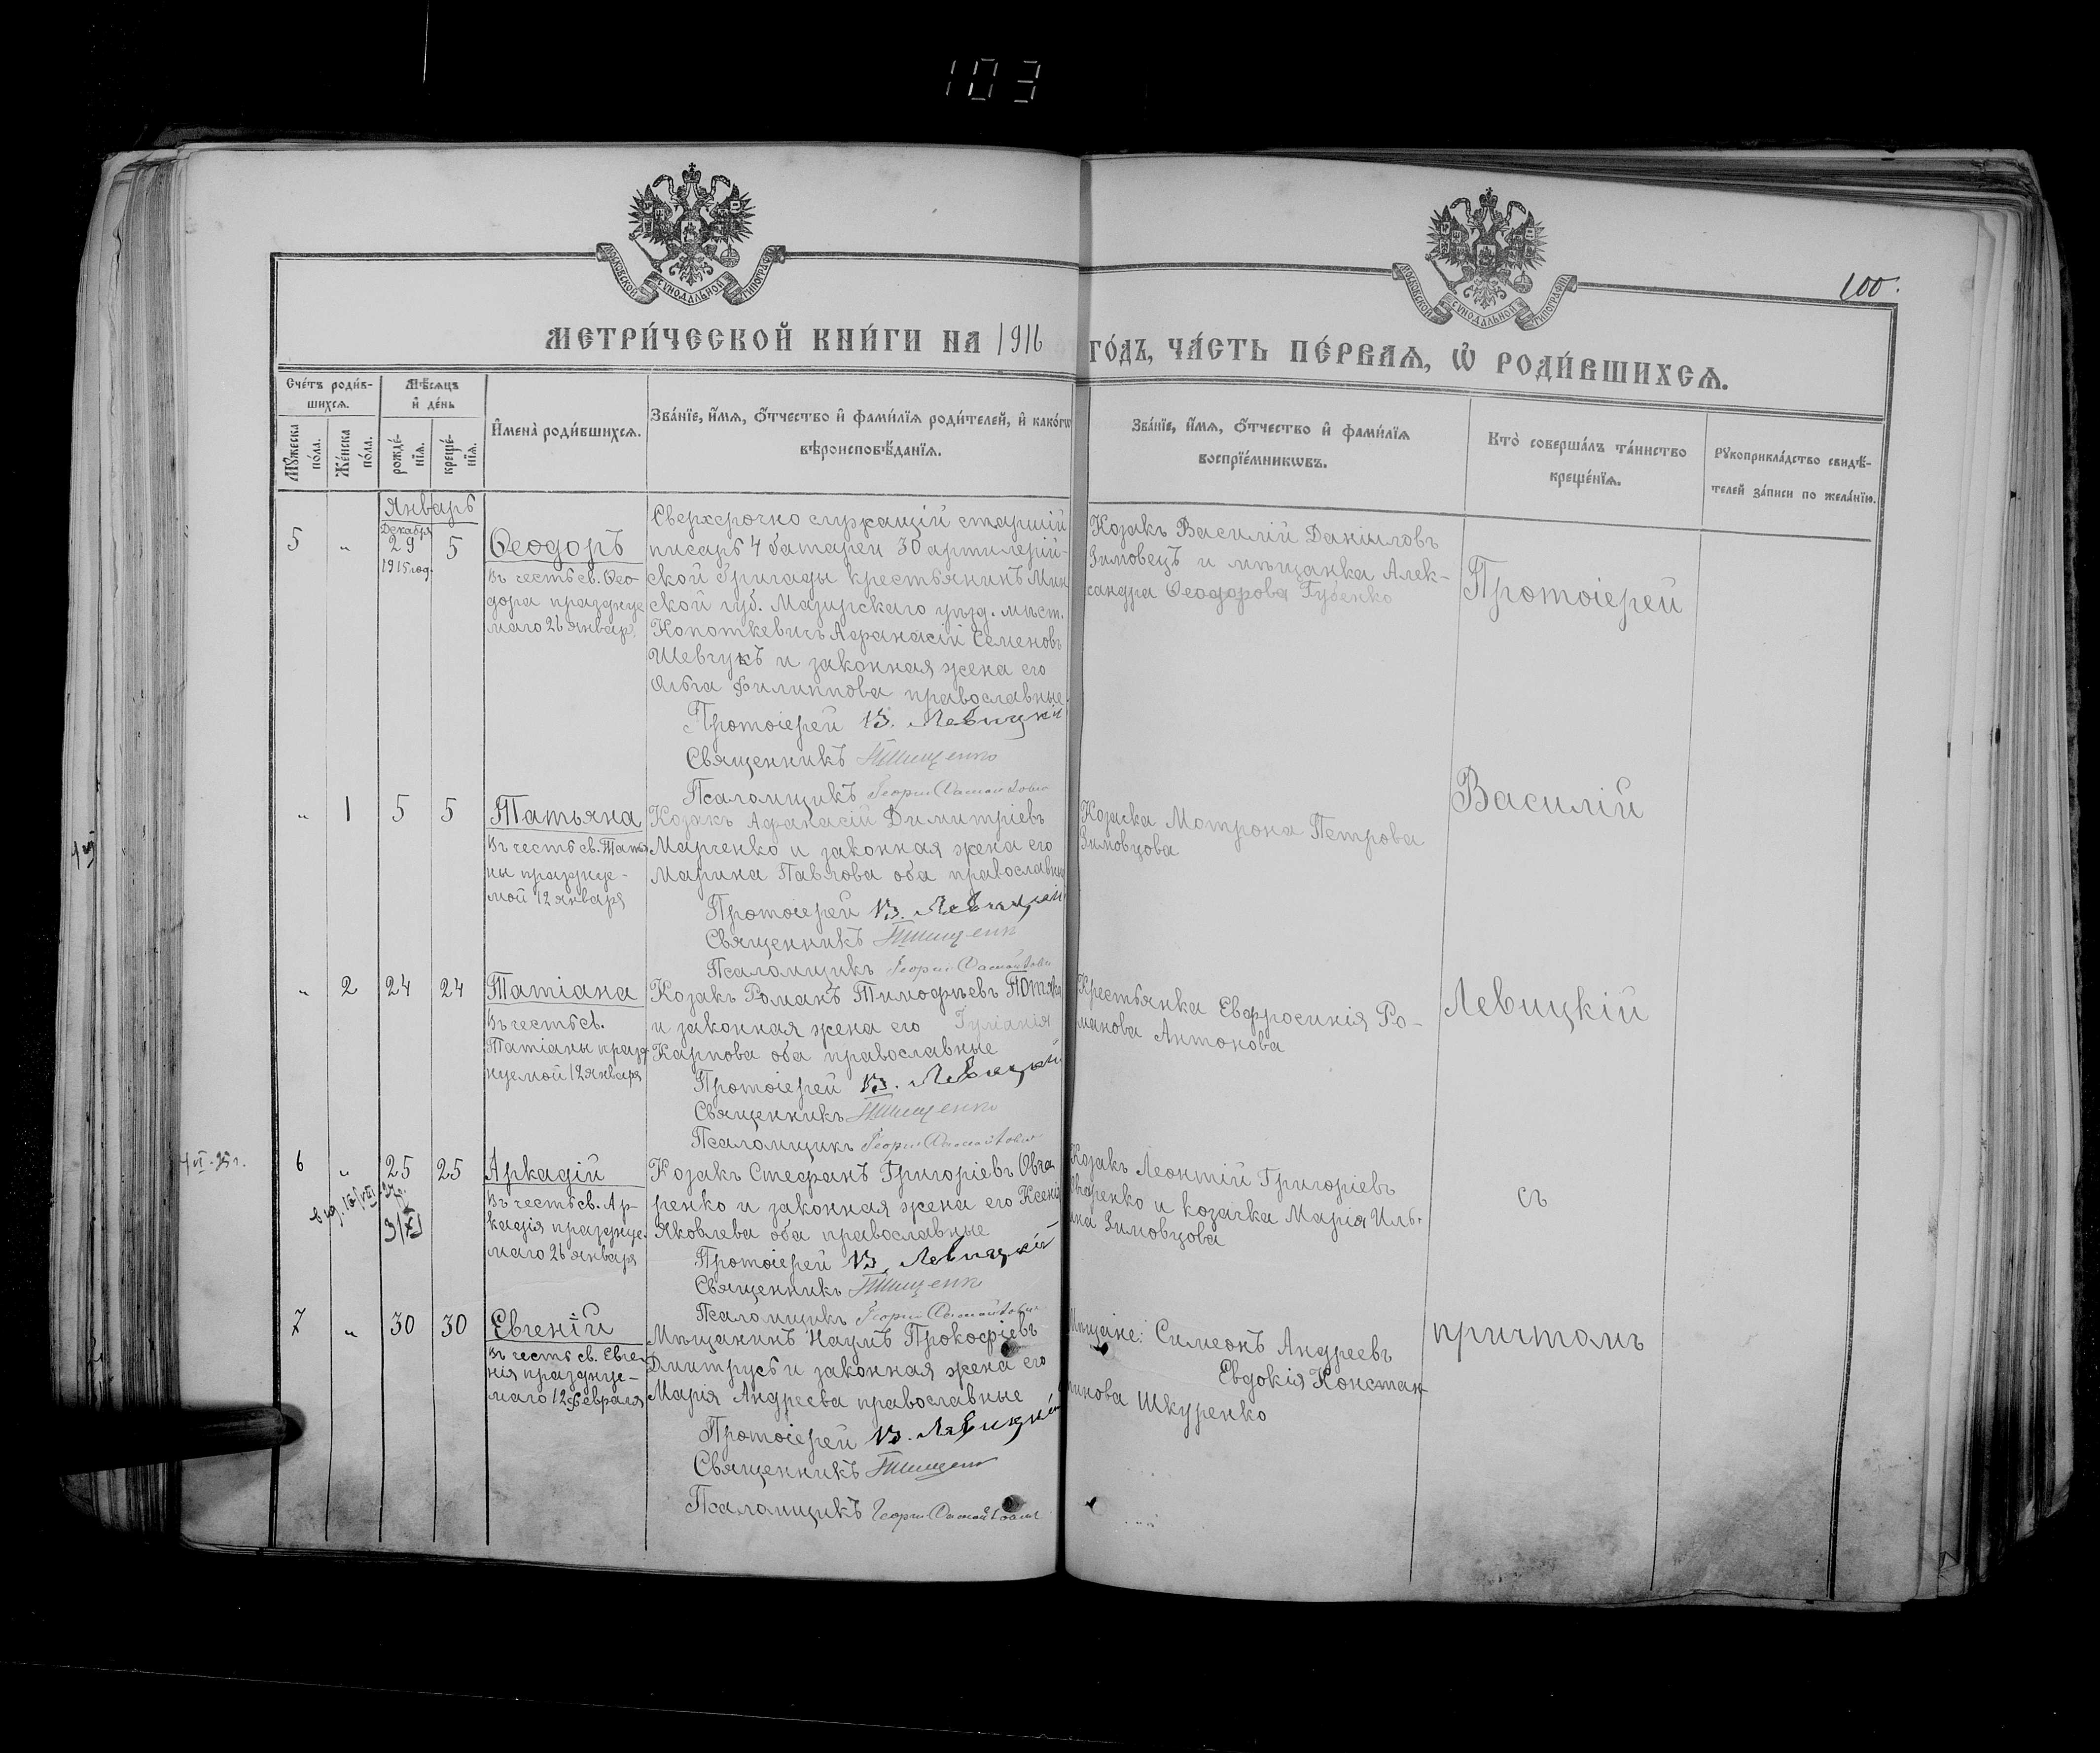 103
МОСКОВСКОЙ СѴНОДАЛЬНОЙ ТИПОГРАФІИ
МОСКОВСКОЙ СѴНОДАЛЬНОЙ ТИПОГРАФІИ
100.
МЕТРИ́ЧЕСКОЙ КНИ́ГИ НА 1916 ГО́ДЪ, ЧА́СТЬ ПЕ́РВАѦ, Ѡ҆ РОДИ́ВШИХСѦ.
Сче́тъ роди́в-
шихсѧ.
Мꙋ́жеска по́ла.
Же́нска по́ла.
Мѣ́сѧцъ
и҆ де́нь
рожде́-
нїѧ.
креще́-
нїѧ.
И҆мена̀ роди́вшихсѧ.
Зва́нїе, и҆́мѧ, ѻ҆́тчество и҆ фами́лїѧ роди́телей, и҆ како́гѡ
вѣроисповѣ́данїѧ.
Зва́нїе, и҆́мѧ, ѻ҆́тчество и҆ фами́лїѧ
воспрїе́мникѡвъ.
Кто̀ соверша́лъ та́инство
креще́нїѧ.
Рꙋкоприкла́дство свидѣ́-
телей за́писи по жела́нїю.
Январь
5 „ Декабря 29 1915 год. 5
Ѳеодоръ
Въ честь св. Ѳео-
дора праздnуе
маго 26 январ.
Сверхсрочно служащій старшій
писарь 4 батареи 30 артилерій-
ской бригады крестьянинъ Мин
ской губ. Мазирскаго уѣзд. мѣст.
Копоткевичъ Афанасій Семеновъ
Шевчукъ и законная жена его
Ольга Филиппова православные.
Протоіерей В. Левицкій
Священникъ
Псаломщикъ Георгій
Козакъ Василій Даніиловъ
Зимовецъ и мѣщанка Алек-
сандра Ѳеодорова Губенко
Протоіерей
„ 1 5 5
Татьяна
Въ честь св. Татья
ны праздnуе-
мой 12 января
Козакъ Афанасій Димитріевъ
Марченко и законная жена его
Марина Павлова оба православные
Протоіерей В. Левицкій
Священникъ
Псаломщикъ Георгій
Козачка Мотрона Петрова
Зимовцова
Василій
„ 2 24 24
Татіана
Въ честь св.
Татіаны празд-
нуемой 12 января
Козакъ Романъ Тимофѣевъ
и законная жена его Іуліанія
Карпова оба православные
Протоіерей В. Левицкій
Священникъ
Псаломщикъ Георгій
Крестьянка Евфросинія Ро-
манова Антонова
Левицкій
6 „ 25 25
Аркадій
Въ честь св. Ар-
кадія праздnуе.
маго 26 января
Козакъ Стефанъ Григоріевъ Овча
ренко и законная жена его Ксенія
Яковлева оба православные
Протоіерей В. Левицкій
Священникъ
Псаломщикъ Георгій
Козакъ Леонтій Григоріевъ
Овчаренко и козачка Марія Иль-
ина Зимовцова
съ
7 „ 30 30
Евгеній
Въ честь св. Евге-
нія праздnуе-
маго 12 февраля
Мѣщанинъ Наумъ Прокофіевъ
Дмитрусь и законная жена его
Марія Андреева православные
Протоіерей В. Левицкій
Священникъ
Псаломщикъ Георгій
Мѣщане: Симеонъ Андреевъ
Евдокія Констан-
тинова Шкуренко
причтомъ